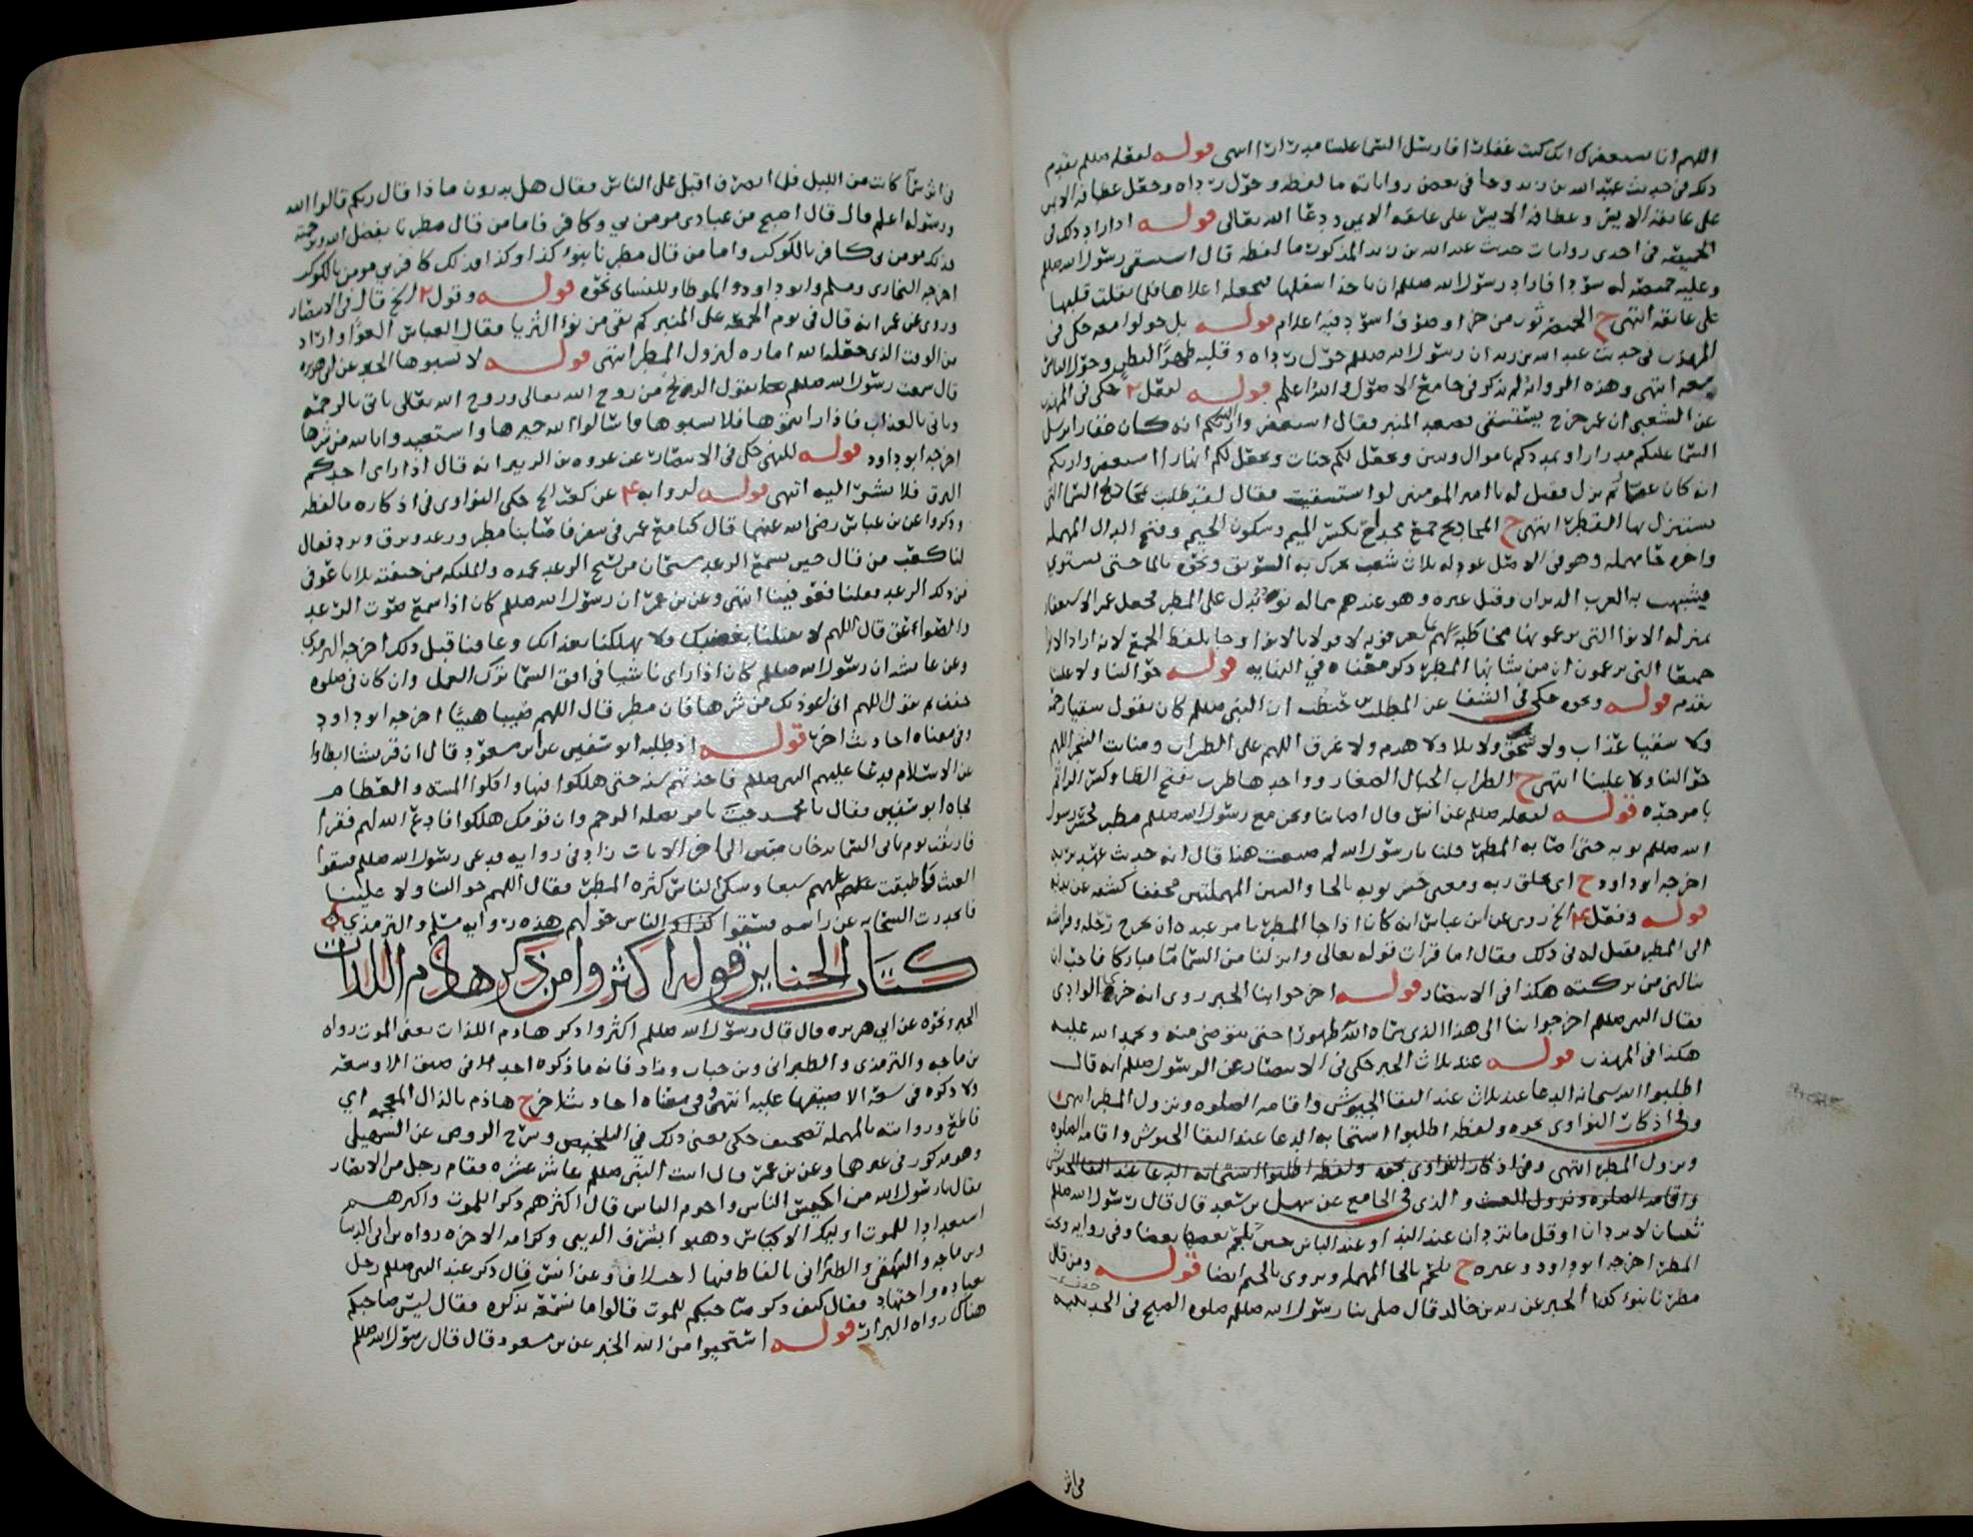 اللهم انا نستغفرك انك كنت غفارا فارسل السما علينا مدرارا انتهى قوله لفعله صللم تقدم
ذلك في حديث عبد الله بن زيد وجا في بعض رواياته ما لفظه وحول رداه وجعل عطافه الايمن
على عاتقه الايسر وعطافه الايسر على عاتقه الايمن ودعا الله تعالى قوله
في احدى روايات حديث عبد الله بن زيد المذكور ما لفظه قال استسقى رسول الله صللم
وعليه خميصة له سودا فاراد رسول الله صللم ان ياخذ اسفلها فيجعله اعلاها فلما ثقلت قلبها
على عاتقه انتهى ح الخميصة ثوب من خز او صوف اسود فيه اعلام قوله بل حولوا معه حكى في
المهذب في حديث عبد الله بن زيد ان رسول الله صللم حول رداه وقلبه ظهرا لبطن وحول الناس
معه انتهى وهذه الرواية لم تذكر في جامع الاصول والله اعلم قوله لفعل حكى في المهذب
عن الشعبي ان عمر خرج يستسقي فصعد المنبر فقال استغفروا ربكم انه كان غفارا يرسل
السما عليكم مدرارا ويمددكم باموال وبنين ويجعل لكم جنات ويجعل لكم انهارا استغفروا ربكم
انه كان غفارا ثم نزل فقيل له يا امير المومنين لو استسقيت فقال لقد طلبت بمجاديح السما التي
يستنزل بها القطر انتهى ح المجاديح جمع مجدح بكسر الميم وسكون الجيم وفتح الدال المهمله
واخره حا مهمله وهو في الاصل عود له ثلاث شعب يحرك به السويق ونحوه بالما حتى يستوي
بمنزله الانوا التي
جميعا التي يزعمون ان من شانها المطر ذكر معناه في النهايه قوله حوالينا ولا علينا
تقدم قوله ونحوه حكى في الشفا عن المطلب بن حنطب ان النبي صللم كان يقول سقيا رحمه
ولا سقيا عذاب ولا محق ولا بلا ولا هدم ولا غرق اللهم على الظراب ومنابت الشجر اللهم
حوالينا ولا علينا انتهى ح الظراب الجبال الصغار وواحدها ظرب بفتح الظا وكسر الرا ثم
با موحده قوله لفعله صللم عن انس قال اصابنا ونحن مع رسول الله صللم مطر فحسر رسول
الله صللم ثوبه حتى اصابه المطر قلنا يا رسول الله لم صنعت هذا قال انه حديث عهد بربه
اخرجه ابو داود ح اي بخلق ربه ومعنى حسر ثوبه بالحا والسين المهملتين مخففا كشفه عن بدنه
قوله وفعل الخ روي عن ابن عباس انه كان اذا جا المطر يامر عبده ان يخرج رحله وفراشه
الى المطر فقيل له في ذلك فقال اما قرات قوله تعالى وانزلنا من السما ما مباركا فاحب ان
ينالني من بركته هكذا في الانتصار قوله اخرجوا بنا الخبر روى انه جرى الوادي
فقال النبي صللم اخرجوا بنا الى هذا الذي سماه الله طهورا حتى نتوضى منه ونحمد الله عليه
هكذا في المهذب قوله عند ثلاث الخبر حكى في الانتصار عن الرسول صللم انه قال
اطلبوا استجابة الدعا عند ثلاث عند التقا الجيوش واقامه الصلوه ونزول المطر انتهى
وفي اذكار النواوي نحوه ولفظه اطلبوا استجابه الدعا عند التقا الجيوش واقامه الصلوه
ونزول المطر انتهى وفي اذكار النواوي نحوه ولفظه اطلبوا استجابه الدعا عند التقا الجيوش
واقامه الصلوه ونزول الغيث والذي في الجامع عن سهل بن سعد قال قال رسول الله صللم
ثنتان لا تردان او قل ما تردان عند الندا وعند الباس حين يلحم بعضهم بعضا وفي روايه وتحت
المطر اخرجه ابو داود وغيره ح يلحم بالحا المهمله ويروى بالجيم ايضا قوله ومن قال
مطرنا بنوء كذا الخبر عن زيد بن خالد قال صلى بنا رسول الله صللم صلوه الصبح في الحديبيه
في اثر
في اثر سما كانت من الليل فلما انصرف اقبل على الناس فقال هل تدرون ما ذا قال ربكم قالوا الله
ورسوله اعلم قال قال اصبح من عبادي مومن بي وكافر فاما من قال مطرنا بفضل الله ورحمته
فذلك مومن بي كافر بالكوكب واما من قال مطرنا بنوء كذا وكذا فذلك كافر بي مومن بالكوكب
اخرجه البخاري ومسلم وابو داود والموطا وللنسائي نحوه قوله وقول الخ قال في الانتصار
وروي عن عمر انه قال في يوم الجمعه على المنبر كم بقي من نوء الثريا فقال العباس العوا واراد
من الوقت الذي جعله الله اماره لنزول المطر انتهى قوله لا تسبوها الخبر عن ابي هريره
قال سمعت رسول الله صللم يقول الريح من روح الله تعالى وروح الله تعالى ياتي بالرحمه
وياتي بالعذاب فاذا رايتموها فلا تسبوها واسالوا الله خيرها واستعيذوا بالله من شرها
اخرجه ابو داود قوله للنهي حكى في الانتصار عن عروه بن الزبير انه قال اذا راى احدكم
البرق فلا يشر اليه انتهى قوله لروايه عن كعب الخ حكى النواوي في اذكاره ما لفظه
وذكروا عن بن عباس رضي الله عنهما قال كنا مع عمر في سفر فاصابنا مطر ورعد وبرق وبرد فقال
لنا كعب من قال حين يسمع الرعد سبحان من يسبح الرعد بحمده والملئكه من خيفته ثلاثا عوفي
من ذلك الرعد فقلنا فعوفينا انتهى وعن بن عمر ان رسول الله صللم كان اذا سمع صوت الرعد
والصواعق قال اللهم لا تقتلنا بغضبك ولا تهلكنا بعذابك وعافنا قبل ذلك اخرجه الترمذي
وعن عائشه ان رسول الله صللم كان اذا راى ناشيا في افق السما ترك العمل وان كان في صلوه
خفف ثم يقول اللهم اني اعوذ بك من شرها فان مطر قال اللهم صيبا هنيئا اخرجه ابو داود
وفي معناه احاديث اخر قوله اذ طلبه ابو سفين عن ابن مسعود قال ان قريشا ابطاوا
عن الاسلام فدعا عليهم النبي صللم فاخذتهم سنه حتى هلكوا فيها واكلوا الميته والعظام
فجاه ابو سفين فقال يا محمد جيت تامر بصله الرحم وان قومك هلكوا فادع الله لهم فقرا
فارتقب يوم تاتي السما بدخان مبين الى اخر الايات زاد في روايه فدعى رسول الله صللم فسقوا
الغيث فاطبقت عليهم سبعا وشكى الناس كثره المطر فقال اللهم حوالينا ولا علينا
فانحدرت السحابه عن راسه فسقوا الناس حولهم هذه روايه مسلم والترمذي
كتاب الجنايز قوله اكثروا من ذكر هاذم اللذات
الخبر ونحوه عن ابي هريره قال قال رسول الله صللم اكثروا ذكر هاذم اللذات يعني الموت رواه
بن ماجه والترمذي والطبراني وبن حبان وزاد فانه ما ذكره احد في ضيق الا وسعه
ولا ذكره في سعة الا ضيقها عليه انتهى وفي معناه احاديث اخر ح هاذم بالذال المعجمه اي
قاطع وروايته بالمهمله تصحيف حكى معنى ذلك في التلخيص وشرح الروض عن السهيلي
وهو مذكور في غيرها وعن بن عمر قال اتيت النبي صللم عاشر عشره فقام رجل من الانصار
فقال يا رسول الله من اكيس الناس واحزم الناس قال اكثرهم ذكرا للموت واكثرهم
استعدادا للموت اوليك الاكياس ذهبوا بشرف الدنيا وكرامه الاخره رواه بن ابي الدنيا
وبن ماجه والبيهقي والطبراني بالفاظ فيها اختلاف وعن انس قال ذكر عند النبي صللم رجل
بعباده واجتهاد فقال كيف ذكر صاحبكم للموت قالوا ما نسمعه يذكره فقال ليس صاحبكم
هناك رواه البزار قوله استحيوا من الله الخبر عن بن مسعود قال قال رسول الله صللم